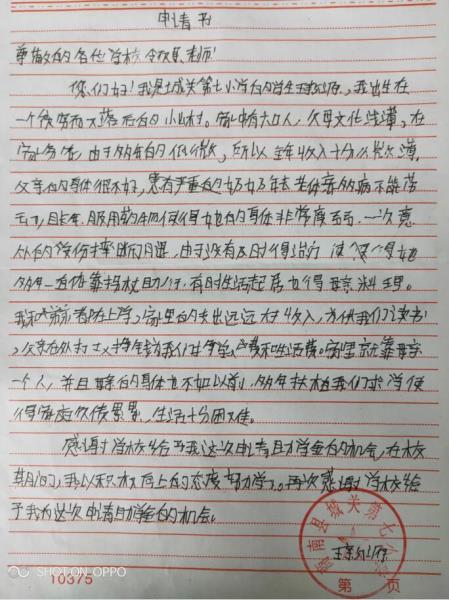 申请书
尊敬的各位学校领导、老师:
您们好!我是城关第七小学的学生王,我出生在
一个很穷而又落后的小山村。家中有六口人,父母文化浅薄,在
家务农,由于务农的低微,所以全年收入十分微薄,
父亲的身体很不好,患有严重的,奶奶年老体弱多病不能劳
动,且长年服用药物使得她的身体非常虚弱,一次意
外的摔断了腿,由于没有及时得治疗,使得她
多年一直依靠拐杖助行,有时生活起居也得母亲料理。
我和弟弟都在上学,家里的支出远远大于收入,为供我们读书,
父亲在外打工挣钱给我们生活费。家里就靠母亲
一个人,并且母亲的身体也不如以前,多年扶植我们求学使
得家庭欠债累累,生活十分困难。
感谢学校给予我这次申请助学金的机会,在校
期间,我以积极向上的态度努力学习。再次感谢学校给
予我这次申请助学金的机会。
县城关第七
第 页
SHOT ON OPPO
10375